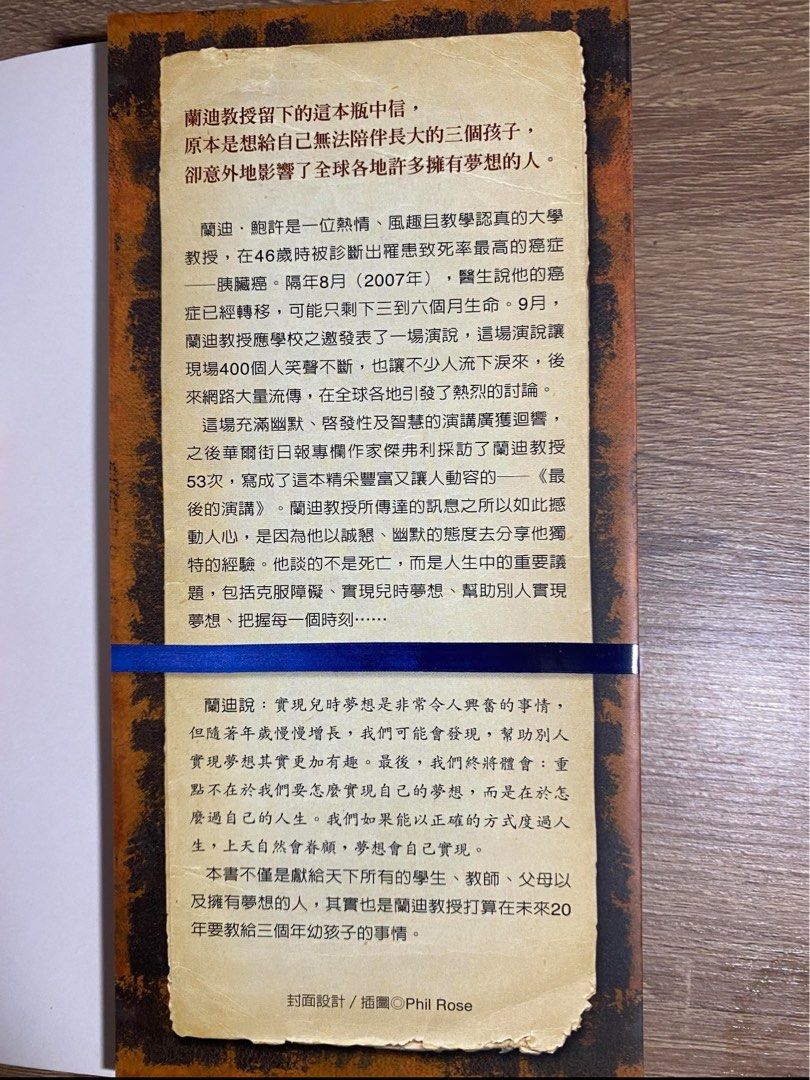 蘭迪教授留下的這本瓶中信，
原本是想給自己無法陪伴長大的三個孩子，
卻意外地影響了全球各地許多擁有夢想的人。
蘭迪．鮑許是一位熱情、風趣且教學認真的大學
教授，在46歲時被診斷出罹患致死率最高的癌症
——胰臟癌。隔年8月（2007年），醫生說他的癌
症已經轉移，可能只剩下三到六個月生命。9月，
蘭迪教授應學校之邀發表了一場演說，這場演說讓
現場400個人笑聲不斷，也讓不少人流下淚來，後
來網路大量流傳，在全球各地引發了熱烈的討論。
這場充滿幽默、啓發性及智慧的演講廣獲迴響，
之後華爾街日報專欄作家傑弗利採訪了蘭迪教授
53次，寫成了這本精采豐富又讓人動容的——《最
後的演講》。蘭迪教授所傳達的訊息之所以如此撼
動人心，是因為他以誠懇、幽默的態度去分享他獨
特的經驗。他談的不是死亡，而是人生中的重要議
題，包括克服障礙、實現兒時夢想、幫助別人實現
夢想、把握每一個時刻……
蘭迪說：實現兒時夢想是非常令人興奮的事情，
但隨著年歲慢慢增長，我們可能會發現，幫助別人
實現夢想其實更加有趣。最後，我們終將體會：重
點不在於我們要怎麼實現自己的夢想，而是在於怎
麼過自己的人生。我們如果能以正確的方式度過人
生，上天自然會眷顧，夢想會自己實現。
本書不僅是獻給天下所有的學生、教師、父母以
及擁有夢想的人，其實也是蘭迪教授打算在未來20
年要教給三個年幼孩子的事情。
封面設計／插圖◎Phil Rose